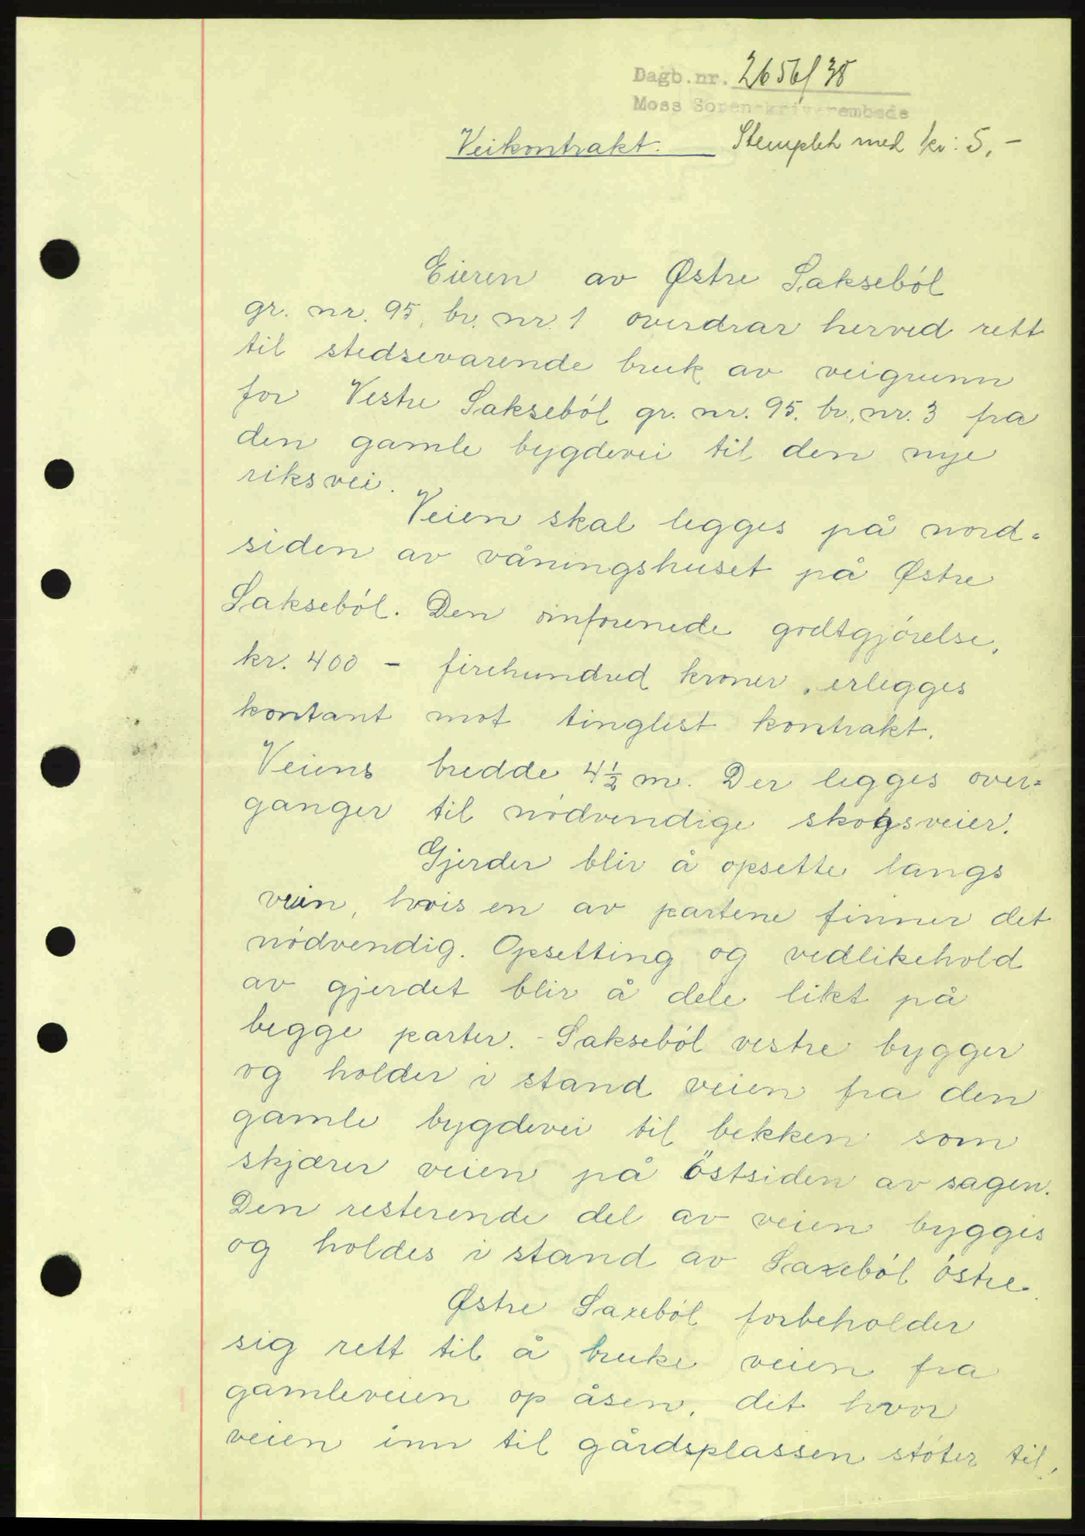 Dagb.nr. 2656/38
Moss Sorenskriverembede
Veikontrakt. Stemplet med kr: 5,-
Eieren av Østre Sakseból
gr. nr. 95, br. nr. 1 overdrar herved rett
til stedsevarende bruk av veigrunn
for Vestre Sakseból gr. nr. 95. br. nr. 3 fra
den gamle bygdevei til den nye
riksvei.
Veien skal legges på nord-
siden av våningshuset på Østre
Sakseból. Den omforenede godtgjórelse,
kr. 400 - firehundred kroner, erlegges
kontant mot tinglest kontrakt.
Veiens bredde 4½ m. Der legges over=
ganger til nódvendige skogsveier.
Gjerder blir å opsette langs
veien, hvis en av partene finner det
nódvendig. Opsetting og vedlikehold
av gjerdet blir å dele likt på
begge parter. - Sakseból vestre bygger
og holder i stand veien fra den
gamle bygdevei til bekken som
skjærer veien på östsiden av sagen.
Den resterende del av veien bygges
og holdes i stand av Saxeból óstre.
Østre Saxeból forbeholder
sig rett til å bruke veien fra
gamleveien op åsen, dit hvor
veien inn til gårdsplassen stóter til,